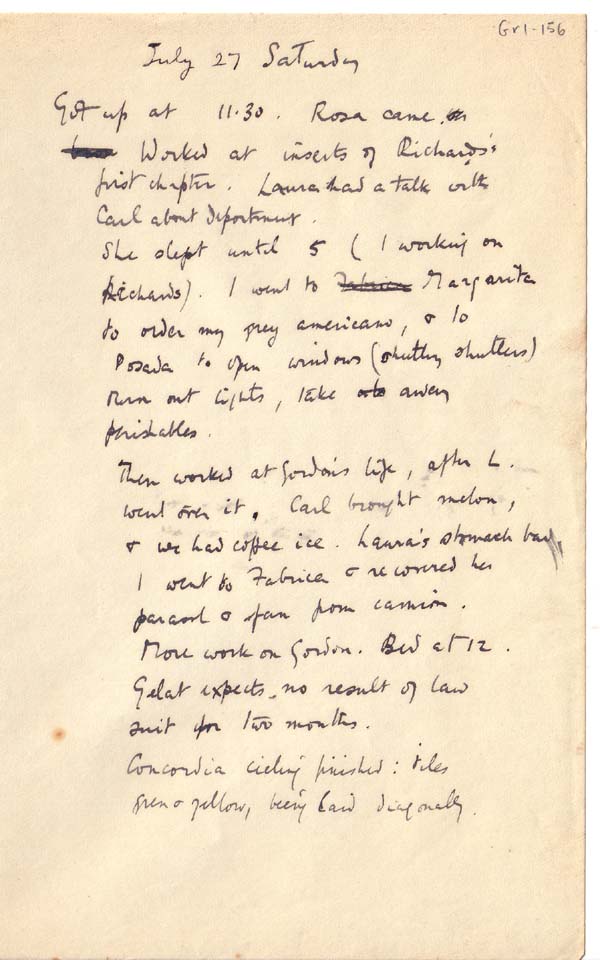 Gr1-156
July 27 Saturday
Got up at 11.30. Rosa came.
Worked at inserts of Richards's
first chapter. Laura had a talk with
Carl about deportment.
She slept until 5 (I working on
Richards). I went to Fabrica Margarita
to order my grey americano, & to
Posada to open windows (shutting shutters)
turn out lights, take away
perishables.
Then worked at Gordon's life, after L.
went over it. Carl brought melon,
& we had coffee ice. Laura's stomach bad,
I went to Fabrica & recovered her
parasol & fan from camion.
More work on Gordon. Bed at 12.
Gelat expects no result of law
suit for two months.
Concordia cieling finished: tiles
green & yellow, being laid diagonally.